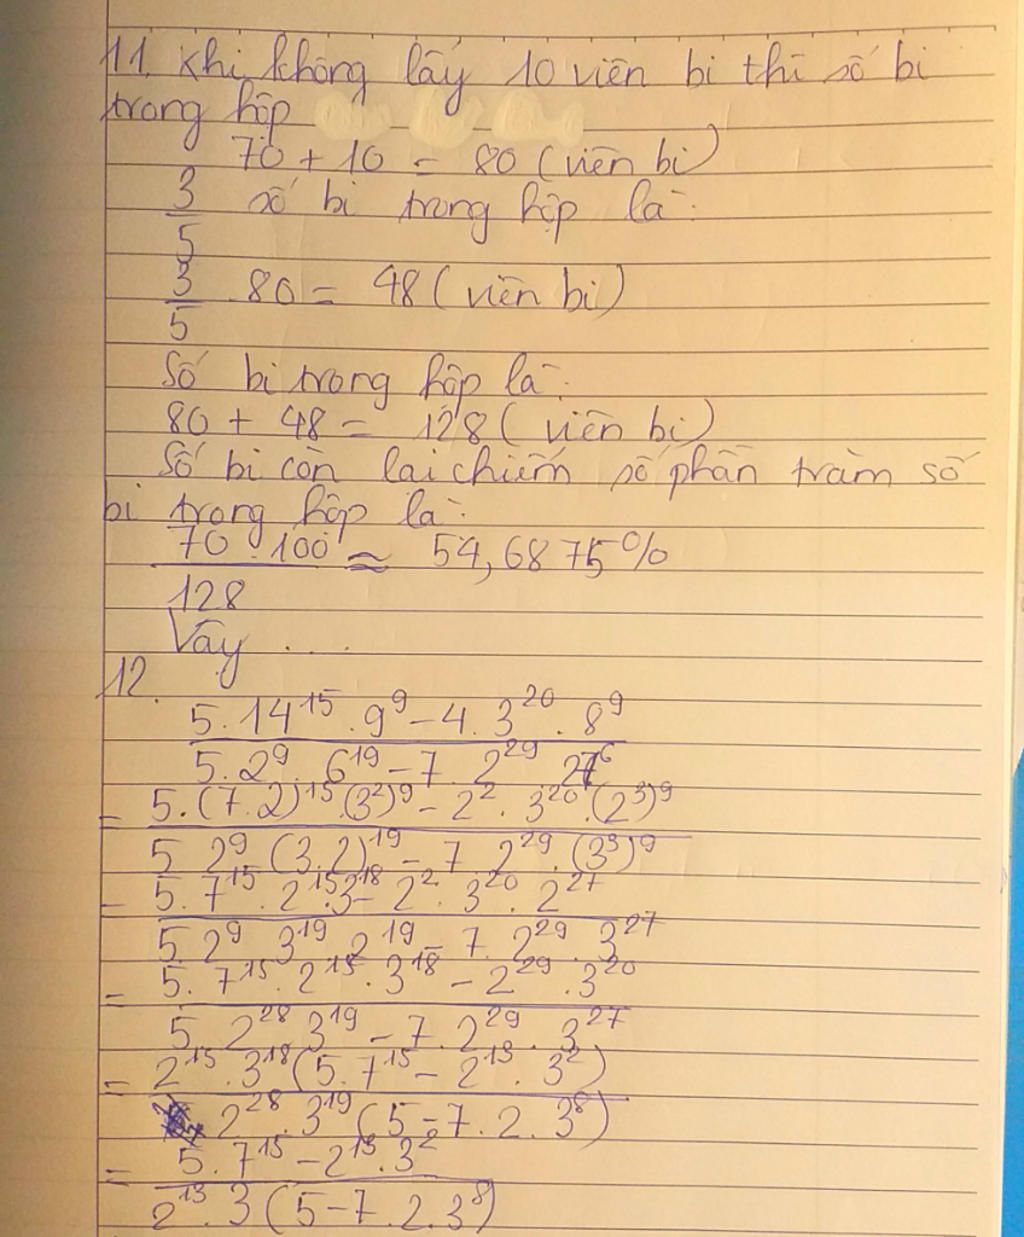 11. Khi không lấy 10 viên bi thì số bi
trong hộp
70 + 10 = 80 (viên bi)
3/5 số bi trong hộp là:
3/5 . 80 = 48 (viên bi)
Số bi trong hộp là:
80 + 48 = 128 (viên bi)
Số bi còn lại chiếm số phần trăm số
bi trong hộp là:
70 . 100 / 128 ≈ 54,6875%
Vậy ....
12.
5.14^15 . 9^9 - 4. 3^20 . 8^9
5. 2^9 . 6^19 - 7. 2^29 . 27^6
= 5.(7.2)^15 .(3^2)^9 - 2^2 . 3^20 .(2^3)^9
5 2^9 (3.2)^19 - 7. 2^29 . (3^3)^9
= 5. 7^15 . 2^15 . 3^18 - 2^2 . 3^20 . 2^27
5. 2^9 3^19 2^19 - 7. 2^29 . 3^27
= 5. 7^15 . 2^15 . 3^18 - 2^29 . 3^20
5. 2^28 3^19 - 7. 2^29 . 3^27
= 2^15 . 3^18 (5. 7^15 - 2^13 . 3^2)
2^28 . 3^19 (5 - 7. 2. 3^8)
= 5. 7^15 - 2^13 . 3^2
2^13 . 3 (5 - 7. 2. 3^8)